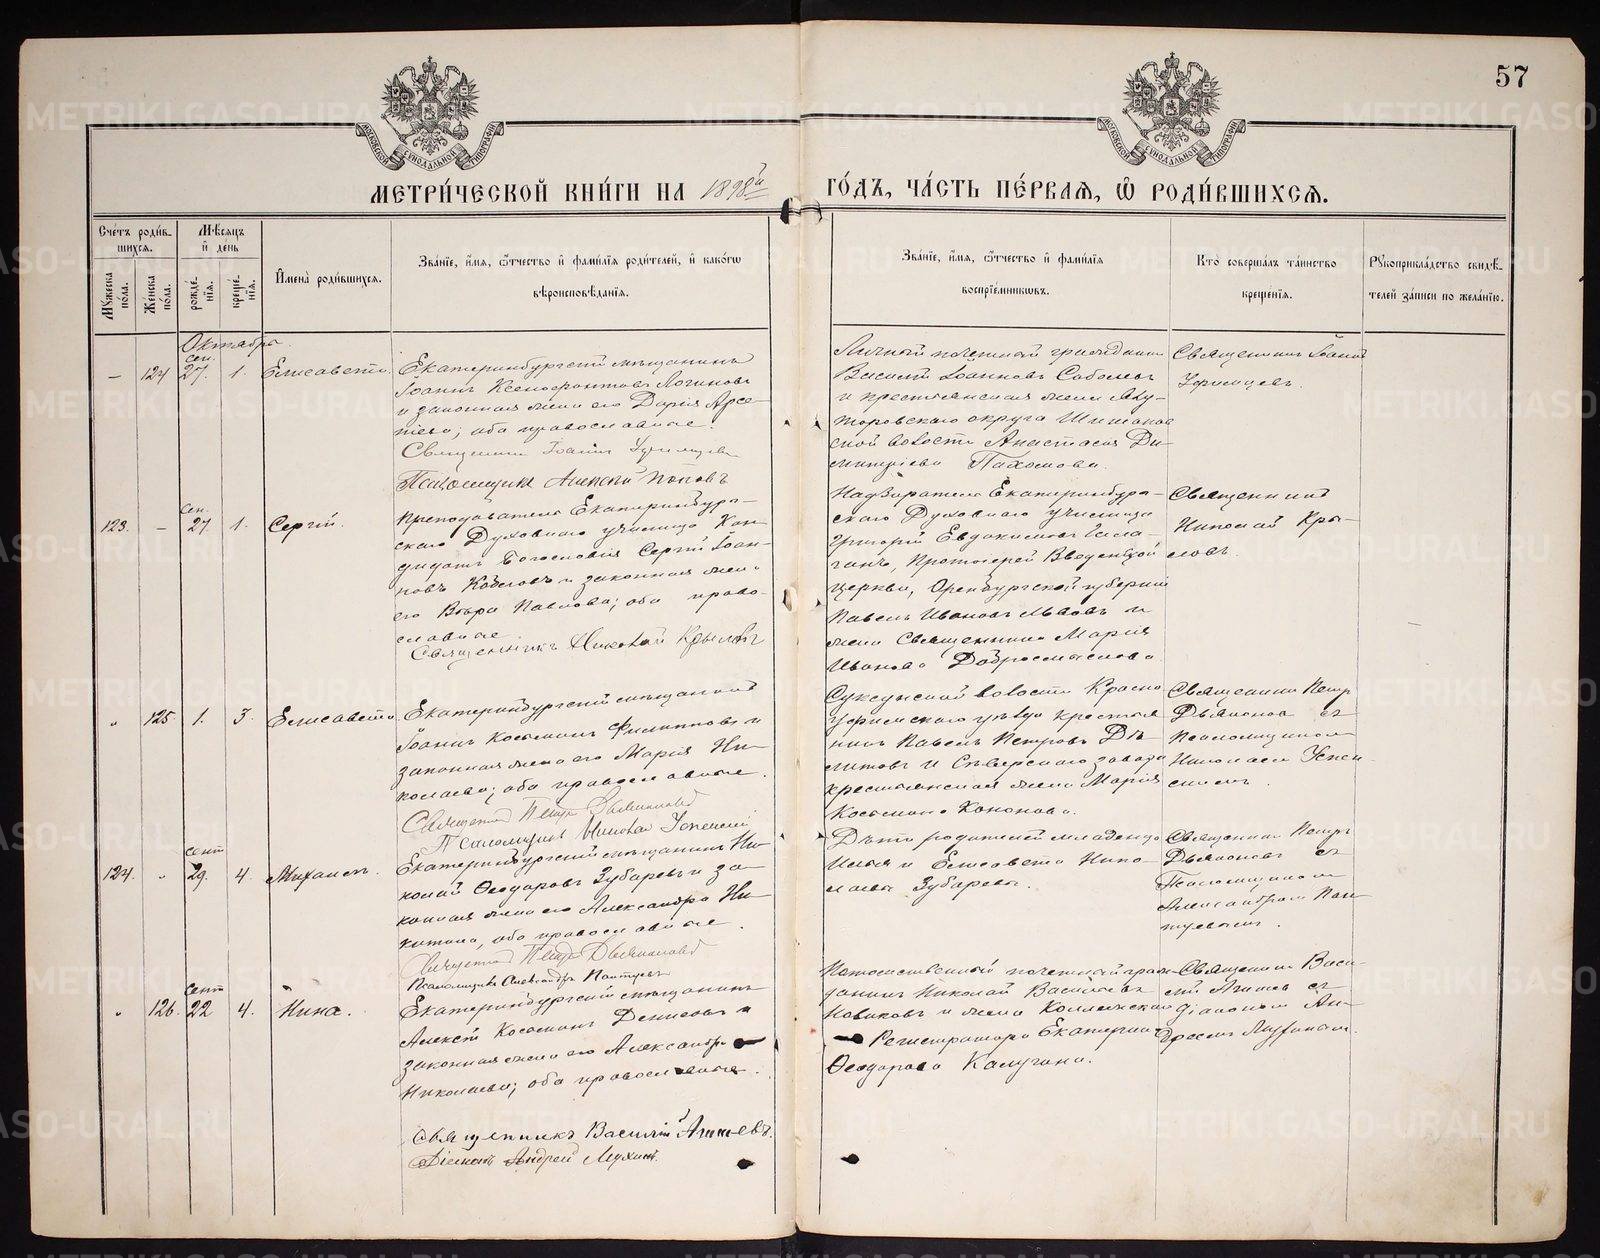 57
МЕТРИ́ЧЕСКОЙ КНИ́ГИ НА 1898й ГО́ДЪ, ЧА́СТЬ ПЕ́РВАЯ, Ѽ РОДИ́ВШИХСЯ.
Сче́тъ роди́в-
шихся.
Му́жеска по́ла.
Же́нска по́ла.
Мѣ́сяцъ и де́нь
рожде́-нїя.
креще́-нїя.
Имена̀ роди́вшихся.
Зва́нїе, и́мя, ѻ҆́тчество и фами́лїя роди́телей, и како́гѡ
вѣроисповѣ́данїя.
Зва́нїе, и́мя, ѻ҆́тчество и фами́лїя
воспрїе́мниковъ.
Кто̀ соверша́лъ та́инство
креще́нїя.
Рꙋкоприкла́дство свидѣ́-
телей за́писи по жела́нїю.
Октябрь
— 124 сен. 27. 1. Елисавета.
Екатеринбургскій мѣщанинъ
Іоаннъ Ксенофонтовъ Логиновъ
и законная жена его Дарія Арсе-
тіева; оба православные.
Священникъ Іоаннъ
Псаломщикъ Алексій Поповъ
Личный почетный гражданинъ
Василій Іоанновъ Соболевъ
и крестьянская жена Ялу-
торовскаго округа
ской волости Анастасія Ди-
митріева Пахомова.
Священникъ Іоаннъ
123. — сен. 27 1. Сергій.
Преподаватель Екатеринбург-
скаго Духовнаго училища Кан-
дидатъ Богословія Сергій Іоан-
новъ и законная жена
его Вѣра Павлова; оба право-
славные.
Священникъ Николай Крыловъ
Надзиратель Екатеринбург-
скаго Духовнаго училища
Григорій Евдокимовъ
Протоіерей Введенской
церкви, Оренбургской губерніи
Павелъ Ивановъ Львовъ и
жена Священника Марія
Иванова Добросмыслова
Священникъ
Николай Кры-
ловъ.
" 125. 1. 3. Елисавета.
Екатеринбургскій мѣщанинъ
Іоаннъ Косьминъ Филипповъ и
законная жена его Марія Ни-
колаева; оба православные.
Священникъ Петръ Дьяконовъ
Псаломщикъ Николай Успенскій
Суксунской волости Красно-
уфимскаго уѣзда крестья-
нинъ Павелъ Петровъ
и Сысертскаго завода
крестьянская жена Марія
Косьмина Кононова.
Священникъ Петръ
Дьяконовъ съ
Псаломщикомъ
Николаемъ Успен-
скимъ.
124. " сент 29. 4. Михаилъ.
Екатеринбургскій мѣщанинъ Ни-
колай Ѳеодоровъ Зубаревъ и за-
конная жена его Александра Ни-
китина, оба православные.
Священникъ Петръ Дьяконовъ
Псаломщикъ Александръ Пантуевъ
Дѣти родителей младенца
Илья и Елисавета Нико-
лаевы Зубаревы.
Священникъ Петръ
Дьяконовъ съ
Псаломщикомъ
Александромъ Пан-
туевымъ.
" 126. сент 22 4. Нина.
Екатеринбургскій мѣщанинъ
Алексѣй Косьминъ Денисовъ и
законная жена его Александра
Николаева; оба православные.
Священникъ Василій Агишевъ.
Діаконъ Андрей Мухинъ.
Потомственный почетный граж-
данинъ Николай Васильевъ
Новиковъ и жена Коллежскаго
Регистратора Екатерина
Ѳеодорова Калугина.
Священникъ Васи-
лій Агишевъ съ
діакономъ Ан-
дреемъ Мухинымъ.